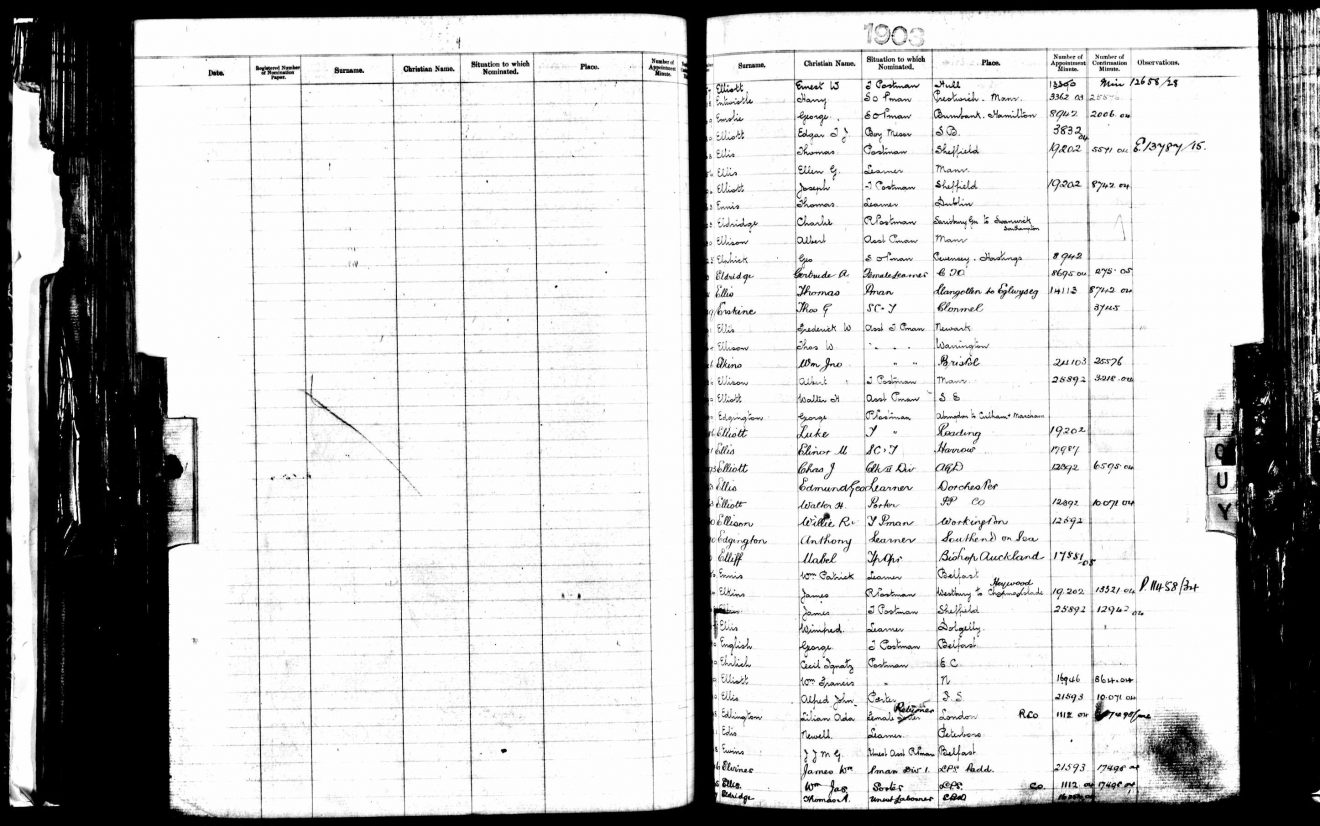 Date. Registered Number of Nomination Paper. Surname. Christian Name. Situation to which Nominated. Place. Number of Appointment Minute.
1903
Surname. Christian Name. Situation to which Nominated. Place. Number of Appointment Minute. Number of Continuation Minute. Observations.
Elliott Ernest W T Postman Hull 13390 12658/28
Entwistle Harry S O Pman Prestwich. Manr. 3362 03 25576
Emslie George S O Pman Burnbank. Hamilton 8942 2006 04
Elliott Edgar T J Boy Messr S.D. 3832 04
Ellis Thomas Postman Sheffield 19202 5571 04 E.13787/15.
Ellis Ellen G. Learner Manr.
Elliott Joseph T Postman Sheffield 19202 8742 04
Ennis Thomas Learner Dublin
Eldridge Charlie R Postman Sarisbury Gn to Swanwick Southampton
Ellison Albert Asst Pman Manr
Elphick Geo S O Pman Pevensey. Hastings 8942
Eldridge Gertrude A. Female Learner C TO 8695 04 275. 05
Ellis Thomas Pman Llangollen to Eglwyseg 14113 8742 04
Erskine Thos G SC & T Clonmel 3745
Ellis Frederick W Asst T Pman Newark
Ellison Thos W. " " " Warrington
Elkins Wm Jno " " Bristol 24103 25576
Ellison Albert T Postman Manr 25892 3218.04
Elliott Walter H Asst Pman S E
Edgington George R Postman Abingdon to Culham & Marcham
Elliott Luke T " Reading 19202
Ellis Elinor M SC & T Harrow 17987
Elliott Chas J Clk II Div AGD 12892 6595 04
Ellis Edmund Geo Learner Dorchester
Elliott Walter H. Porter PP CO 12892 10071 04
Ellison Willie R. T Pman Workington 12892
Edgington Anthony Learner Southend on Sea
Elliff Mabel Tp Opr Bishop Auckland 17881 05
Ennis Wm Patrick Learner Belfast
Elkins James R Postman Westbury to Heywood 19,202 13321 04 P.11458/34
James T Postman Sheffield 25892 12942 04
Ellis Winifred. Learner Dolgelly.
English George T Postman Belfast
Ehrlich Cecil Ignatz Postman E.C
Elliott Wm Francis " N 16946 864.04
Ellis Alfred John Porter S.S 21593 10.071 04
Edlington Lilian Ada Female Sorter Returner London RCO 1112 04 7498/
Edis Newell Learner Peterboro
Ewins J J M G. Unest Asst R Pman Belfast
Elvines James Wm Pman Div 1. LPS Padd. 21593 17498 04
Ellis. Wm Jas Porter LPS. CO 1112 04 17498 04
Eldridge Thomas A. Unest Labourer
I
O
U
Y